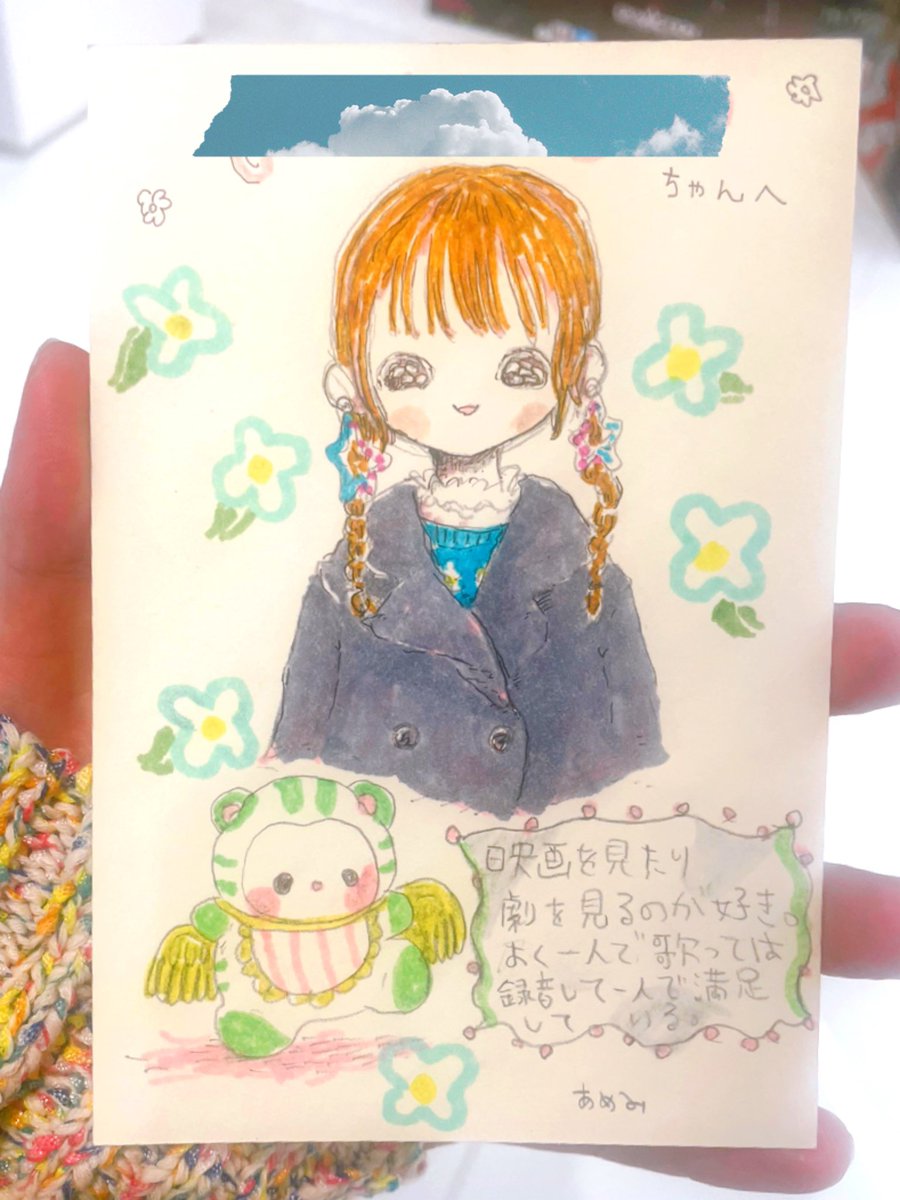 ちゃんへ
映画を見たり
劇を見るのが好き。
よく一人で歌っては
録音して一人で満足
している。
あめみ